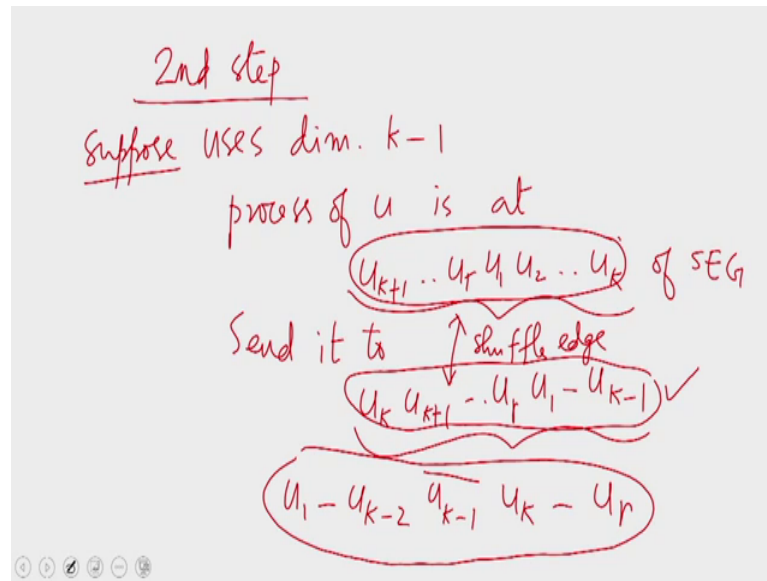 2nd step
Suppose uses dim. k-1
process of u is at
u_{k+1} .. u_r u_1 u_2 .. u_k of SEG
Send it to ↕ shuffle edge
u_k u_{k+1} -.. u_r u_1 - u_{k-1} ✓
u_1 - u_{k-2} \overline{u}_{k-1} u_k - u_r